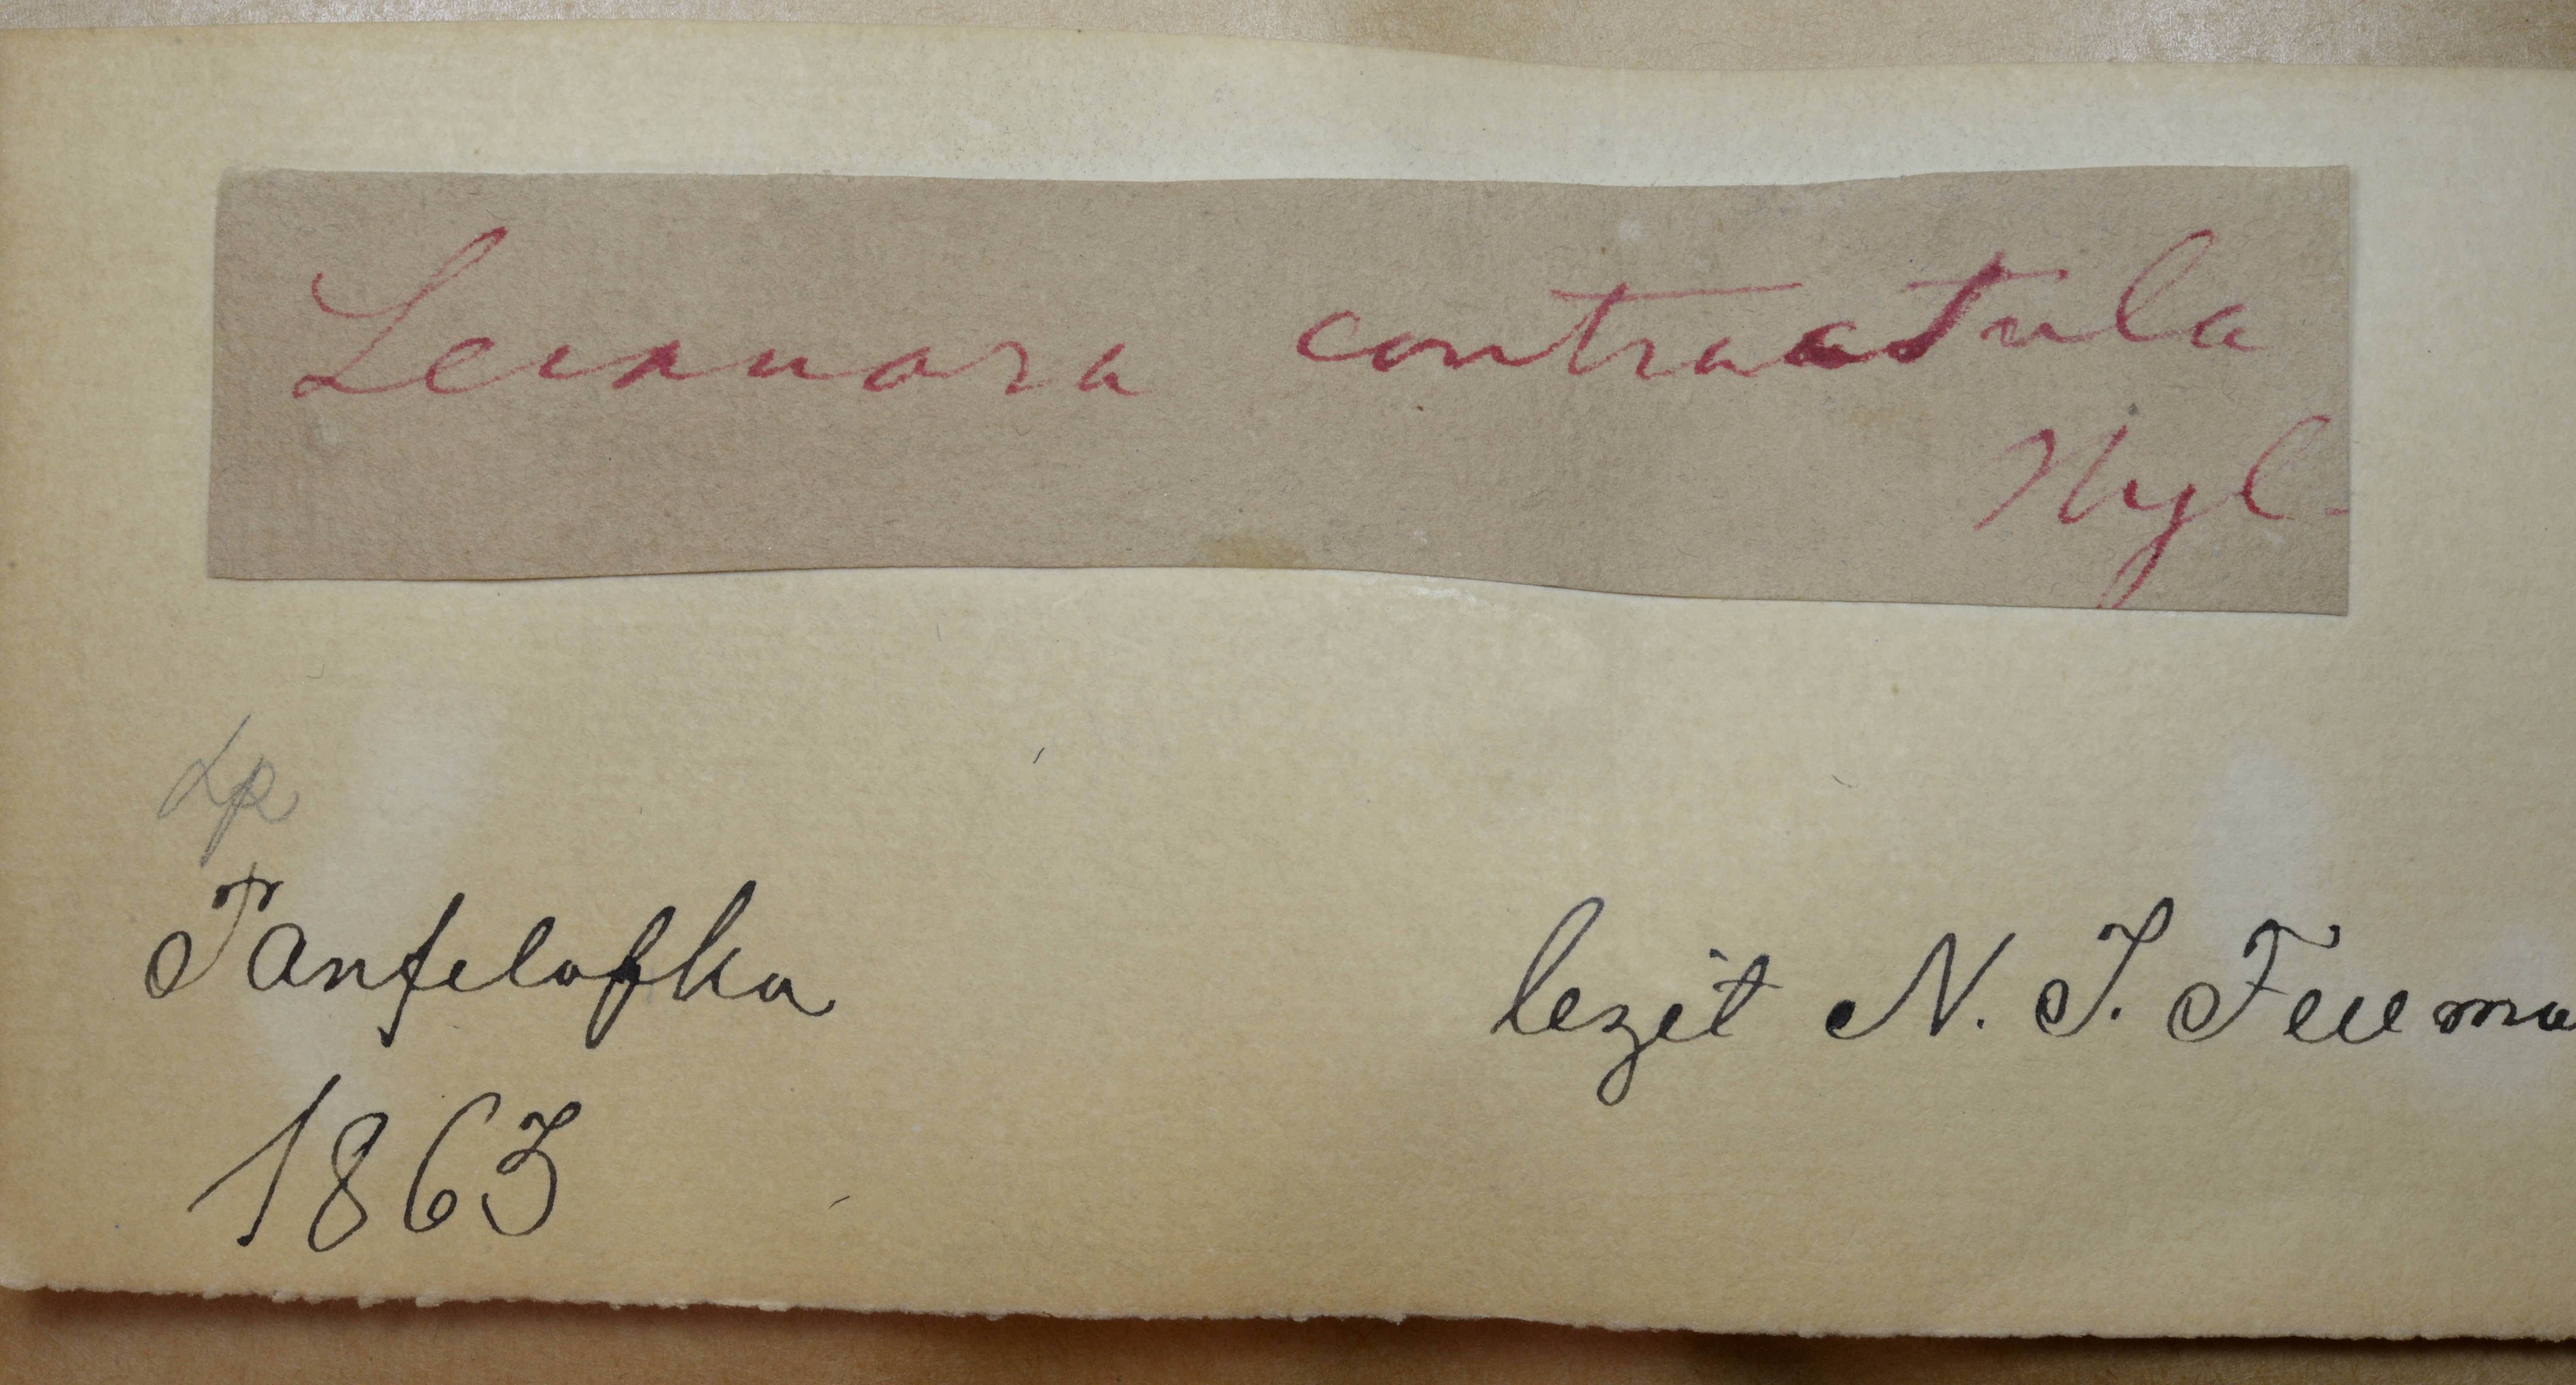 Lecanora contractula
Nyl.
Lp
Panfelofka
1863
legit N. J. Fellma